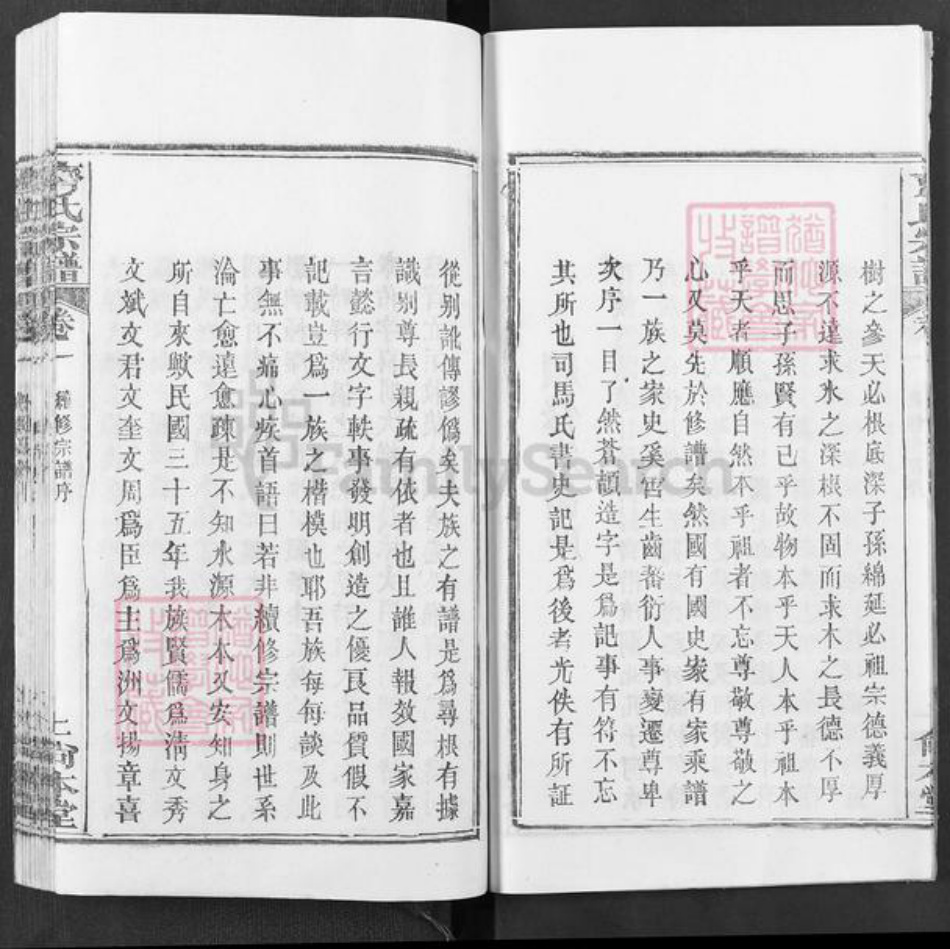 樹之參天必根底深子孫綿延必祖宗德義厚
源不達求水之深根不固而求木之長德不厚
而思子孫賢有已乎故物本乎天人本乎祖本
乎天者順應自然本乎祖者不忘尊敬尊敬之
心又莫先於修譜矣然國有國史家有家乘譜
乃一族之家史奚啻生齒蕃衍人事變遷尊卑
次序一目了然蒼頡造字是爲記事有符不忘
其所也司馬氏書史記是爲後者光佚有所証
從別訛傳謬僞矣夫族之有譜是爲尋根有據
識別尊長親疏有依者也且誰人報效國家嘉
言懿行文字軼事發明創造之優良品質假不
記載豈爲一族之楷模也耶吾族每每談及此
事無不痛心疾首語曰若非續修宗譜則世系
淪亡愈遠愈疎是不知水源木本又安知身之
所自來歟民國三十五年我族賢儒爲清文秀
文斌文君文奎文周爲臣爲主爲洲文揚章喜
氏宗譜
卷一
修宗譜序
上
尚本堂
FamilySearch